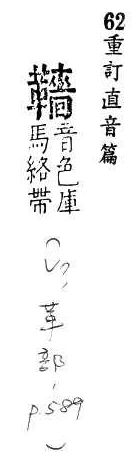 62 重訂直音篇
音色庫
馬絡帶
(革部, p.589)